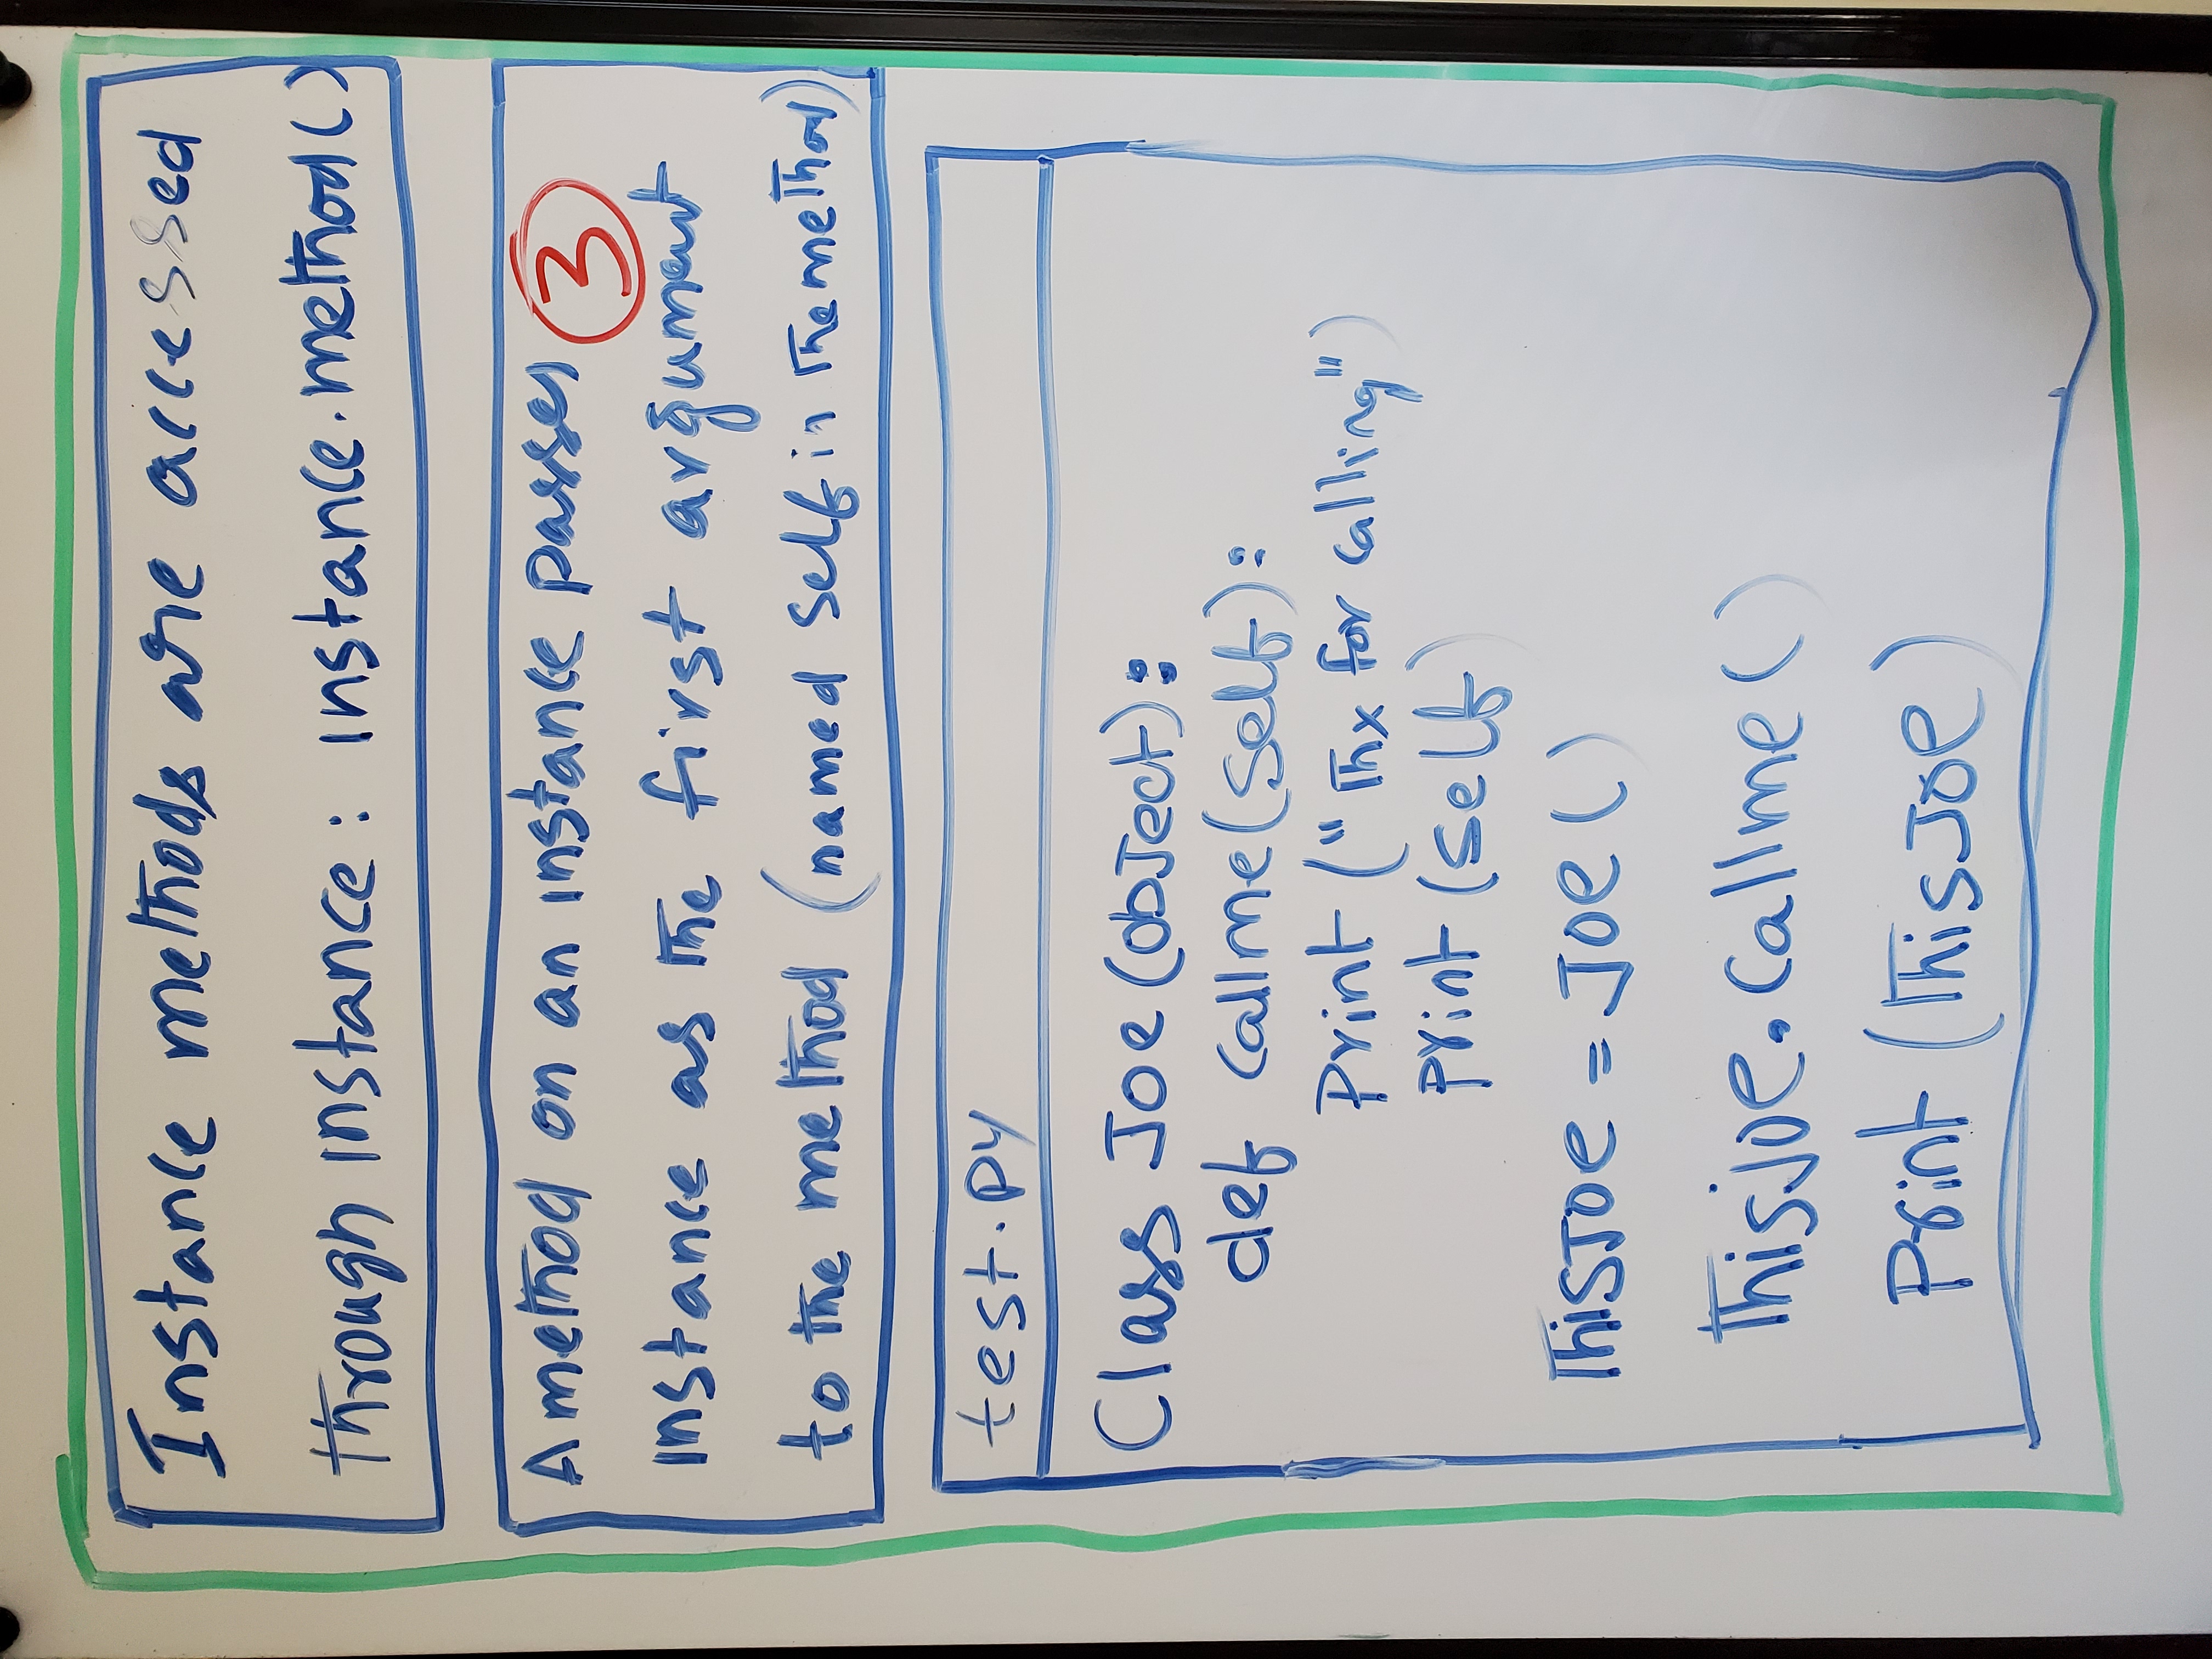 Instance methods are accessed
through instance: instance.method()
A method on an instance passes 3
instance as the first argument
to the method (named self in the method)
test.py
Class Joe(object):
def callme(self):
Print ("Thx for calling")
print (self)
ThisJoe = Joe ()
Thisjoe.callme()
Print (ThisJoe)